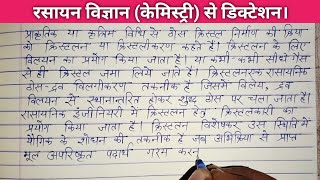 रसायन विज्ञान (केमिस्ट्री) से डिक्टेशन।
प्राकृतिक या कृत्रिम विधि से ठोस क्रिस्टल निर्माण की क्रिया
को क्रिस्टलन या क्रिस्टलीकरण कहते हैं। क्रिस्टलन के लिए
विलयन का प्रयोग किया जाता है। या कभी-कभी सीधे गैस
से ही क्रिस्टल जमा लिये जाते हैं। क्रिस्टलन एक रासायनिक
ठोस-द्रव विलगीकरण तकनीक है जिसमें विलेय, द्रव
विलयन से स्थानान्तरित होकर शुद्ध ठोस पर चला जाता है।
रासायनिक इंजीनियरी में क्रिस्टलन हेतु क्रिस्टलकारी का
प्रयोग किया जाता है। क्रिस्टलन विशेषकर उस स्थिति में
यौगिक के शोधन की तकनीक है जब अभिक्रिया से प्राप्त
मूल अपरिष्कृत पदार्थ गरम करन